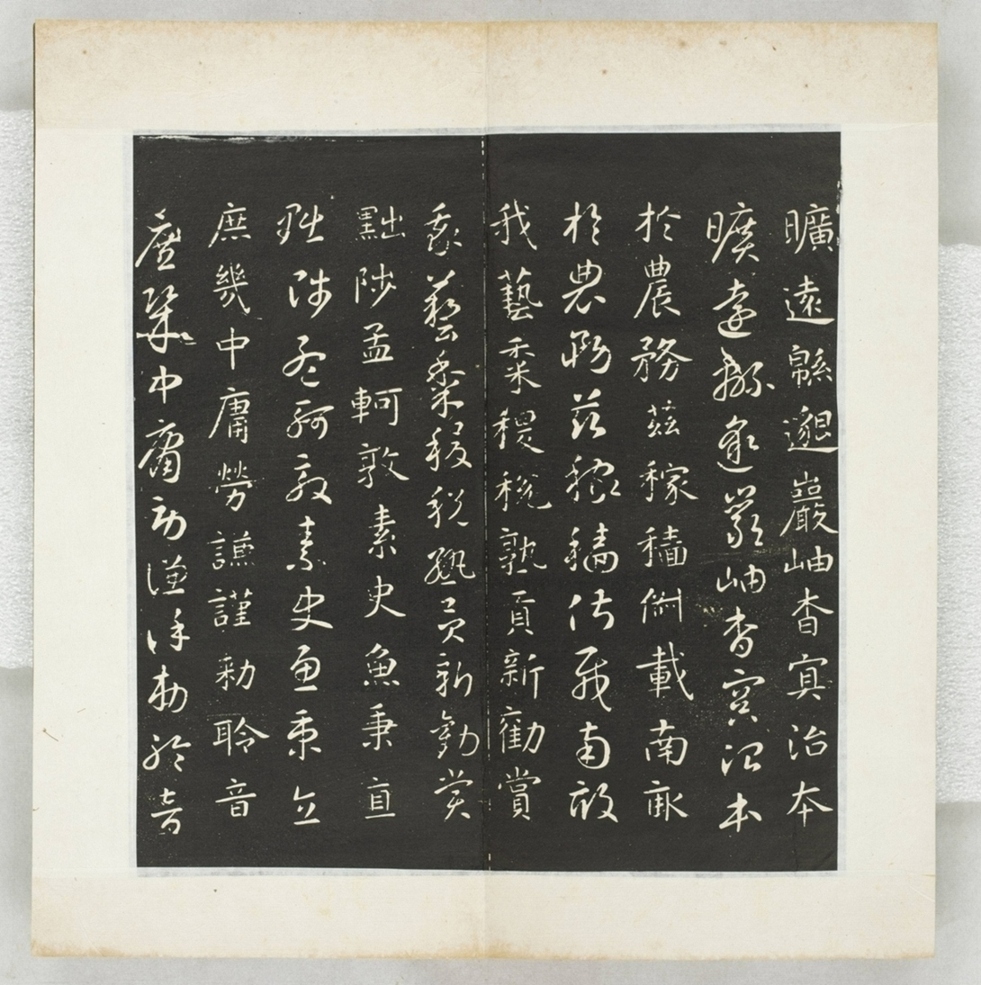 曠遠緜邈巖岫杳冥治本
曠遠緜邈巖岫杳冥治本
於農務茲稼穡俶載南畝
於農務茲稼穡俶載南畝
我藝黍稷稅熟貢新勸賞
我藝黍稷稅熟貢新勸賞
黜陟孟軻敦素史魚秉直
黜陟孟軻敦素史魚秉直
庶幾中庸勞謙謹勑聆音
庶幾中庸勞謙謹勑聆音